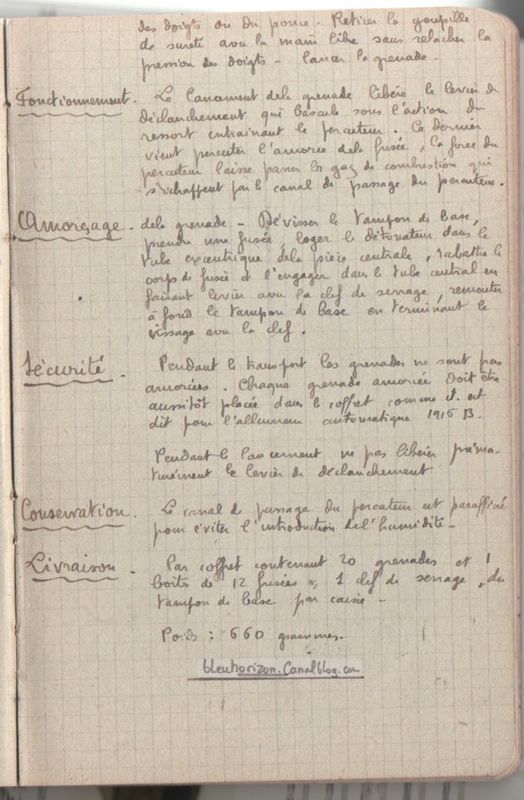 des doigts ou du pouce. Retirer la goupille
de sureté avec la main libre sans relacher la
pression des doigts - lancer la grenade.
Fonctionnement. Le lancement de la grenade libère le levier de
déclanchement qui bascule sous l'action du
ressort entrainant le percuteur. Ce dernier
vient percuter l'amorce de la fusée, la force du
percuteur laisse passer les gaz de combustion qui
s'echappent par le canal de passage du percuteur.
Amorçage. de la grenade - Dévisser le tampon de base,
prendre une fusée, loger le détonateur dans le
tube excentrique de la pièce centrale, rabattre le
corps de fusée et l'engager dans le tube central en
faisant levier avec la clef de serrage, remonter
à fond le tampon de base en terminant le
vissage avec la clef.
Sécurité. Pendant le transport les grenades ne sont pas
amorcées. Chaque grenade amorcée doit être
aussitôt placée dans le coffret comme il est
dit pour l'allumeur automatique 1916 B.
Pendant le lancement ne pas libérer préma-
turément le levier de déclanchement
Conservation. Le canal de passage du percuteur est paraffiné
pour éviter l'introduction de l'humidité -
Livraison - Par coffret contenant 20 grenades et 1
boite de 12 fusées, 1 clef de serrage du
tampon de base par caisse -
Poids : 660 grammes.
bleuhorizon.Canalblog.com